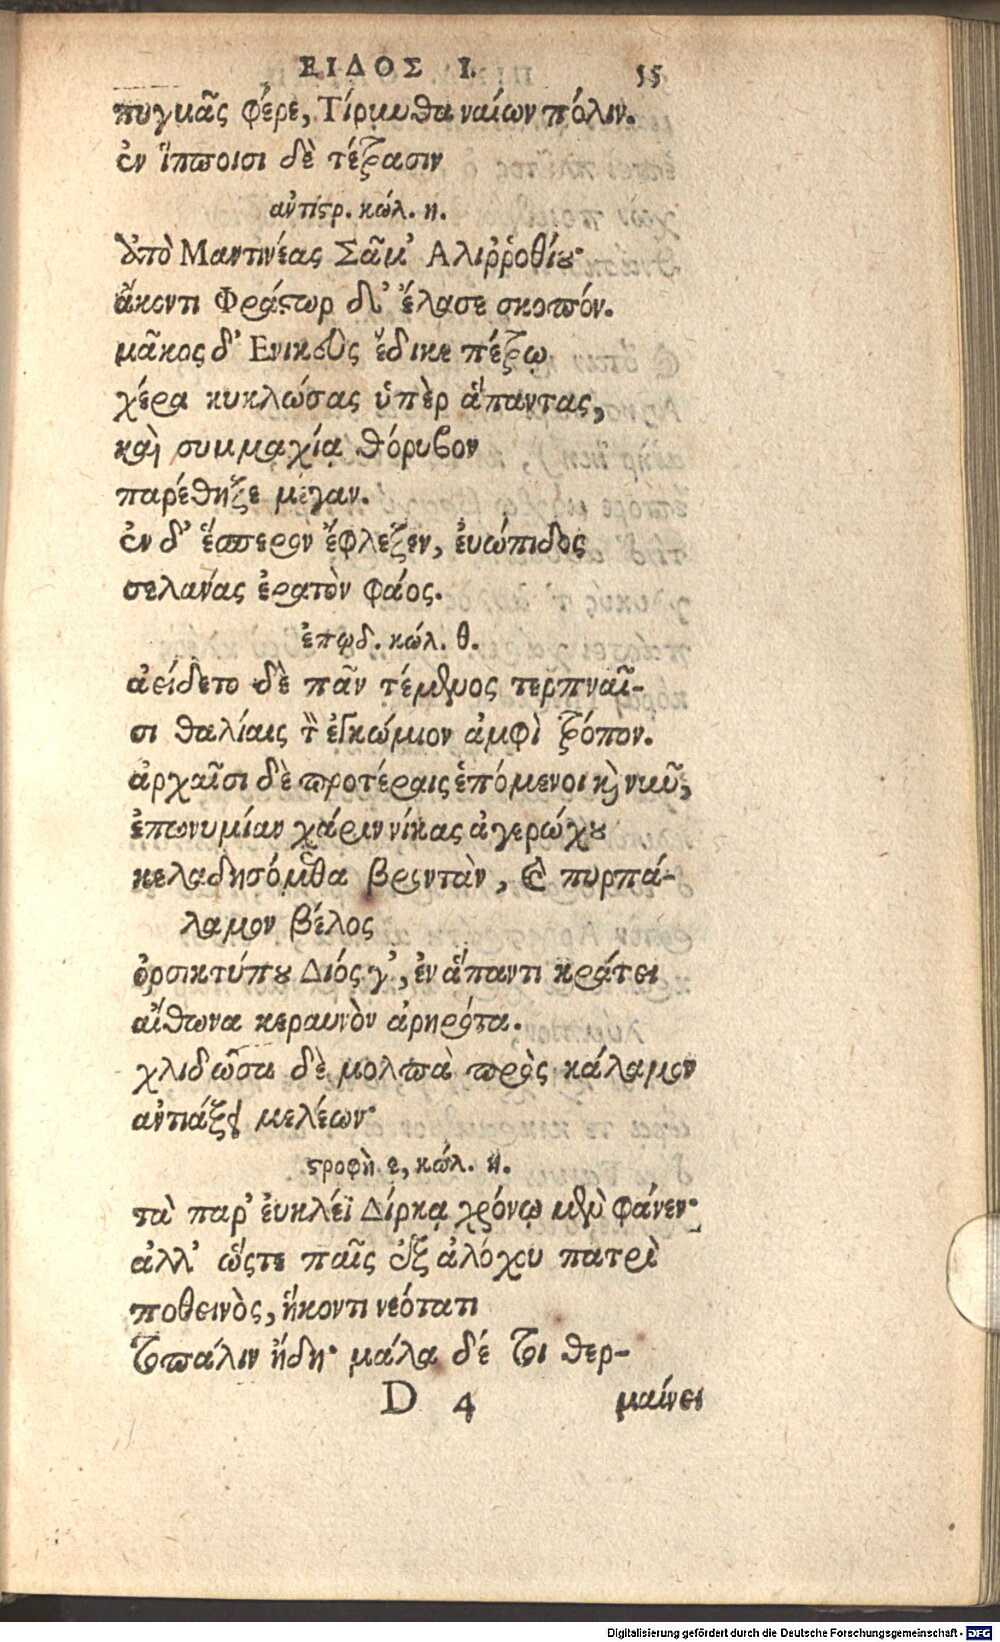 ΕΙΔΟΣ Ι. 55
πυγμᾶς φέρε, Τίρυνθα ναίων πόλιν.
ἐν ἵπποισι δὲ τέτρασιν
ἀντίστρ. κώλ. η.
ἀπὸ Μαντινέας Σᾶμ' Αλιῤῥοθίου·
ἄκοντι Φράστωρ δ' ἔλασε σκοπόν.
μᾶκος δ' Ενικεὺς ἔδικε πέτρῳ
χέρα κυκλώσας ὑπὲρ ἅπαντας,
καὶ συμμαχίᾳ θόρυβον
παρέθηξε μέγαν.
ἐν δ' ἕσπερον ἔφλεξεν, ἐυώπιδος
σελάνας ἐρατὸν φάος.
ἐπῳδ. κώλ. θ.
ἀείδετο δὲ πᾶν τέμενος τερπναῖ-
σι θαλίαις τὸν ἐγκώμιον ἀμφὶ τρόπον.
ἀρχαῖσι δὲ προτέραις ἑπόμενοι καὶ νυῦ,
ἐπωνυμίαν χάριν νίκας ἀγερώχου
κελαδησόμεθα βροντὰν, καὶ πυρπά-
λαμον βέλος
ὀρσικτύπου Διός γ', ἐν ἅπαντι κράτει
αἴθωνα κεραυνὸν ἀρηρότα.
χλιδῶσα δὲ μολπὰ πρὸς κάλαμον
ἀντιάξει μελέων·
στροφὴ ε, κώλ. η.
τὰ παρ' ἐυκλέϊ Δίρκᾳ χρόνῳ μὲν φάνεν·
ἀλλ' ὥςτε παῖς ἐξ ἀλόχου πατρὶ
ποθεινὸς, ἥκοντι νεότατι
τοπάλιν ἤδη· μάλα δέ τοι θερ-
D 4 μαίνει
Digitalisierung gefördert durch die Deutsche Forschungsgemeinschaft - DFG